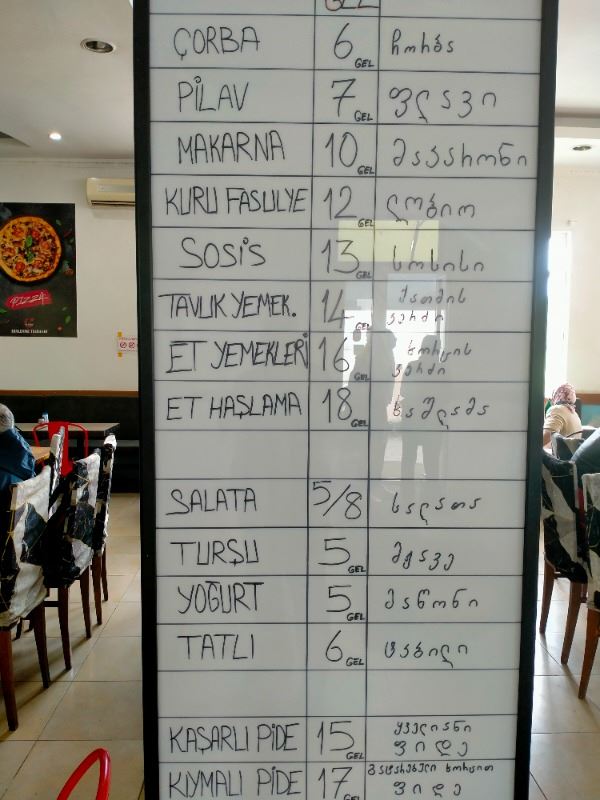 GEL
ÇORBA 6 GEL ჩორბა
PİLAV 7 GEL ფლავი
MAKARNA 10 GEL მაკარონი
KURU FASULYE 12 GEL ლობიო
SOSİS 13 GEL სოსისი
TAVUK YEMEK. 14 GEL ქათმის
კერძი
ET YEMEKLERİ 16 GEL ხორცის
კერძი
ET HAŞLAMA 18 GEL ხაშლამა
SALATA 5/8 სალათა
TURŞU 5 GEL მჟავე
YOĞURT 5 GEL მაწონი
TATLI 6 GEL ტკბილი
KAŞARLI PİDE 15 GEL ყველიანი
ფიდე
KIYMALI PİDE 17 GEL გატარებული ხორცით
ფიდე
PIZZA